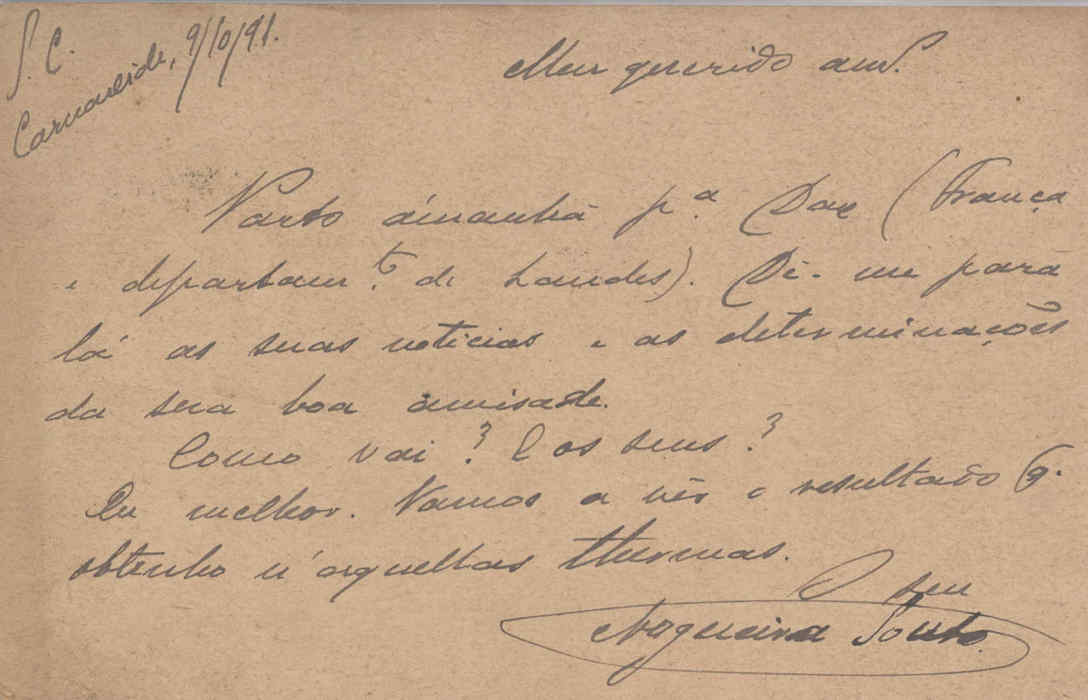 S. C.
Carnaxide, 9/10/91.
Meu querido am.º
Parto ámanhã p.ª Dax (França
e departam.to de Landes). Dê-me para
lá as suas noticias e as determinações
da sua boa amisade.
Como vai? E os seus?
Eu melhor. Vamos a vêr o resultado q.
obtenho n'aquellas thermas.
O seu
Nogueira Souto